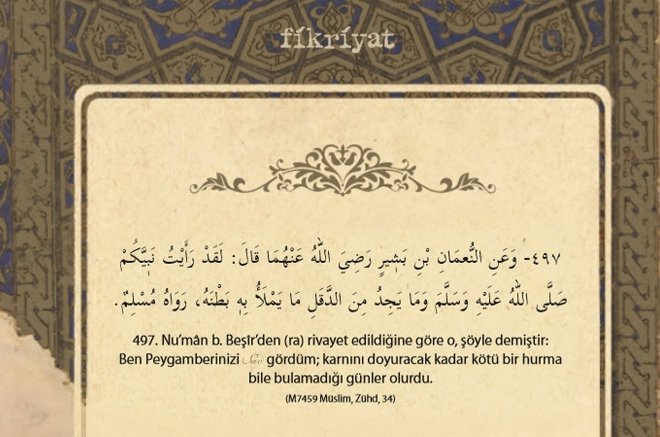 fikriyat
٤٩٧- وَعَنِ النُّعْمَانِ بْنِ بَشِيرٍ رَضِيَ اللهُ عَنْهُمَا قَالَ: لَقَدْ رَأَيْتُ نَبِيَّكُمْ
صَلَّى اللهُ عَلَيْهِ وَسَلَّمَ وَمَا يَجِدُ مِنَ الدَّقَلِ مَا يَمْلَأُ بِهِ بَطْنَهُ، رَوَاهُ مُسْلِمٌ.
497. Nu’mân b. Beşîr’den (ra) rivayet edildiğine göre o, şöyle demiştir:
Ben Peygamberinizi ﷺ gördüm; karnını doyuracak kadar kötü bir hurma
bile bulamadığı günler olurdu.
(M7459 Müslim, Zühd, 34)